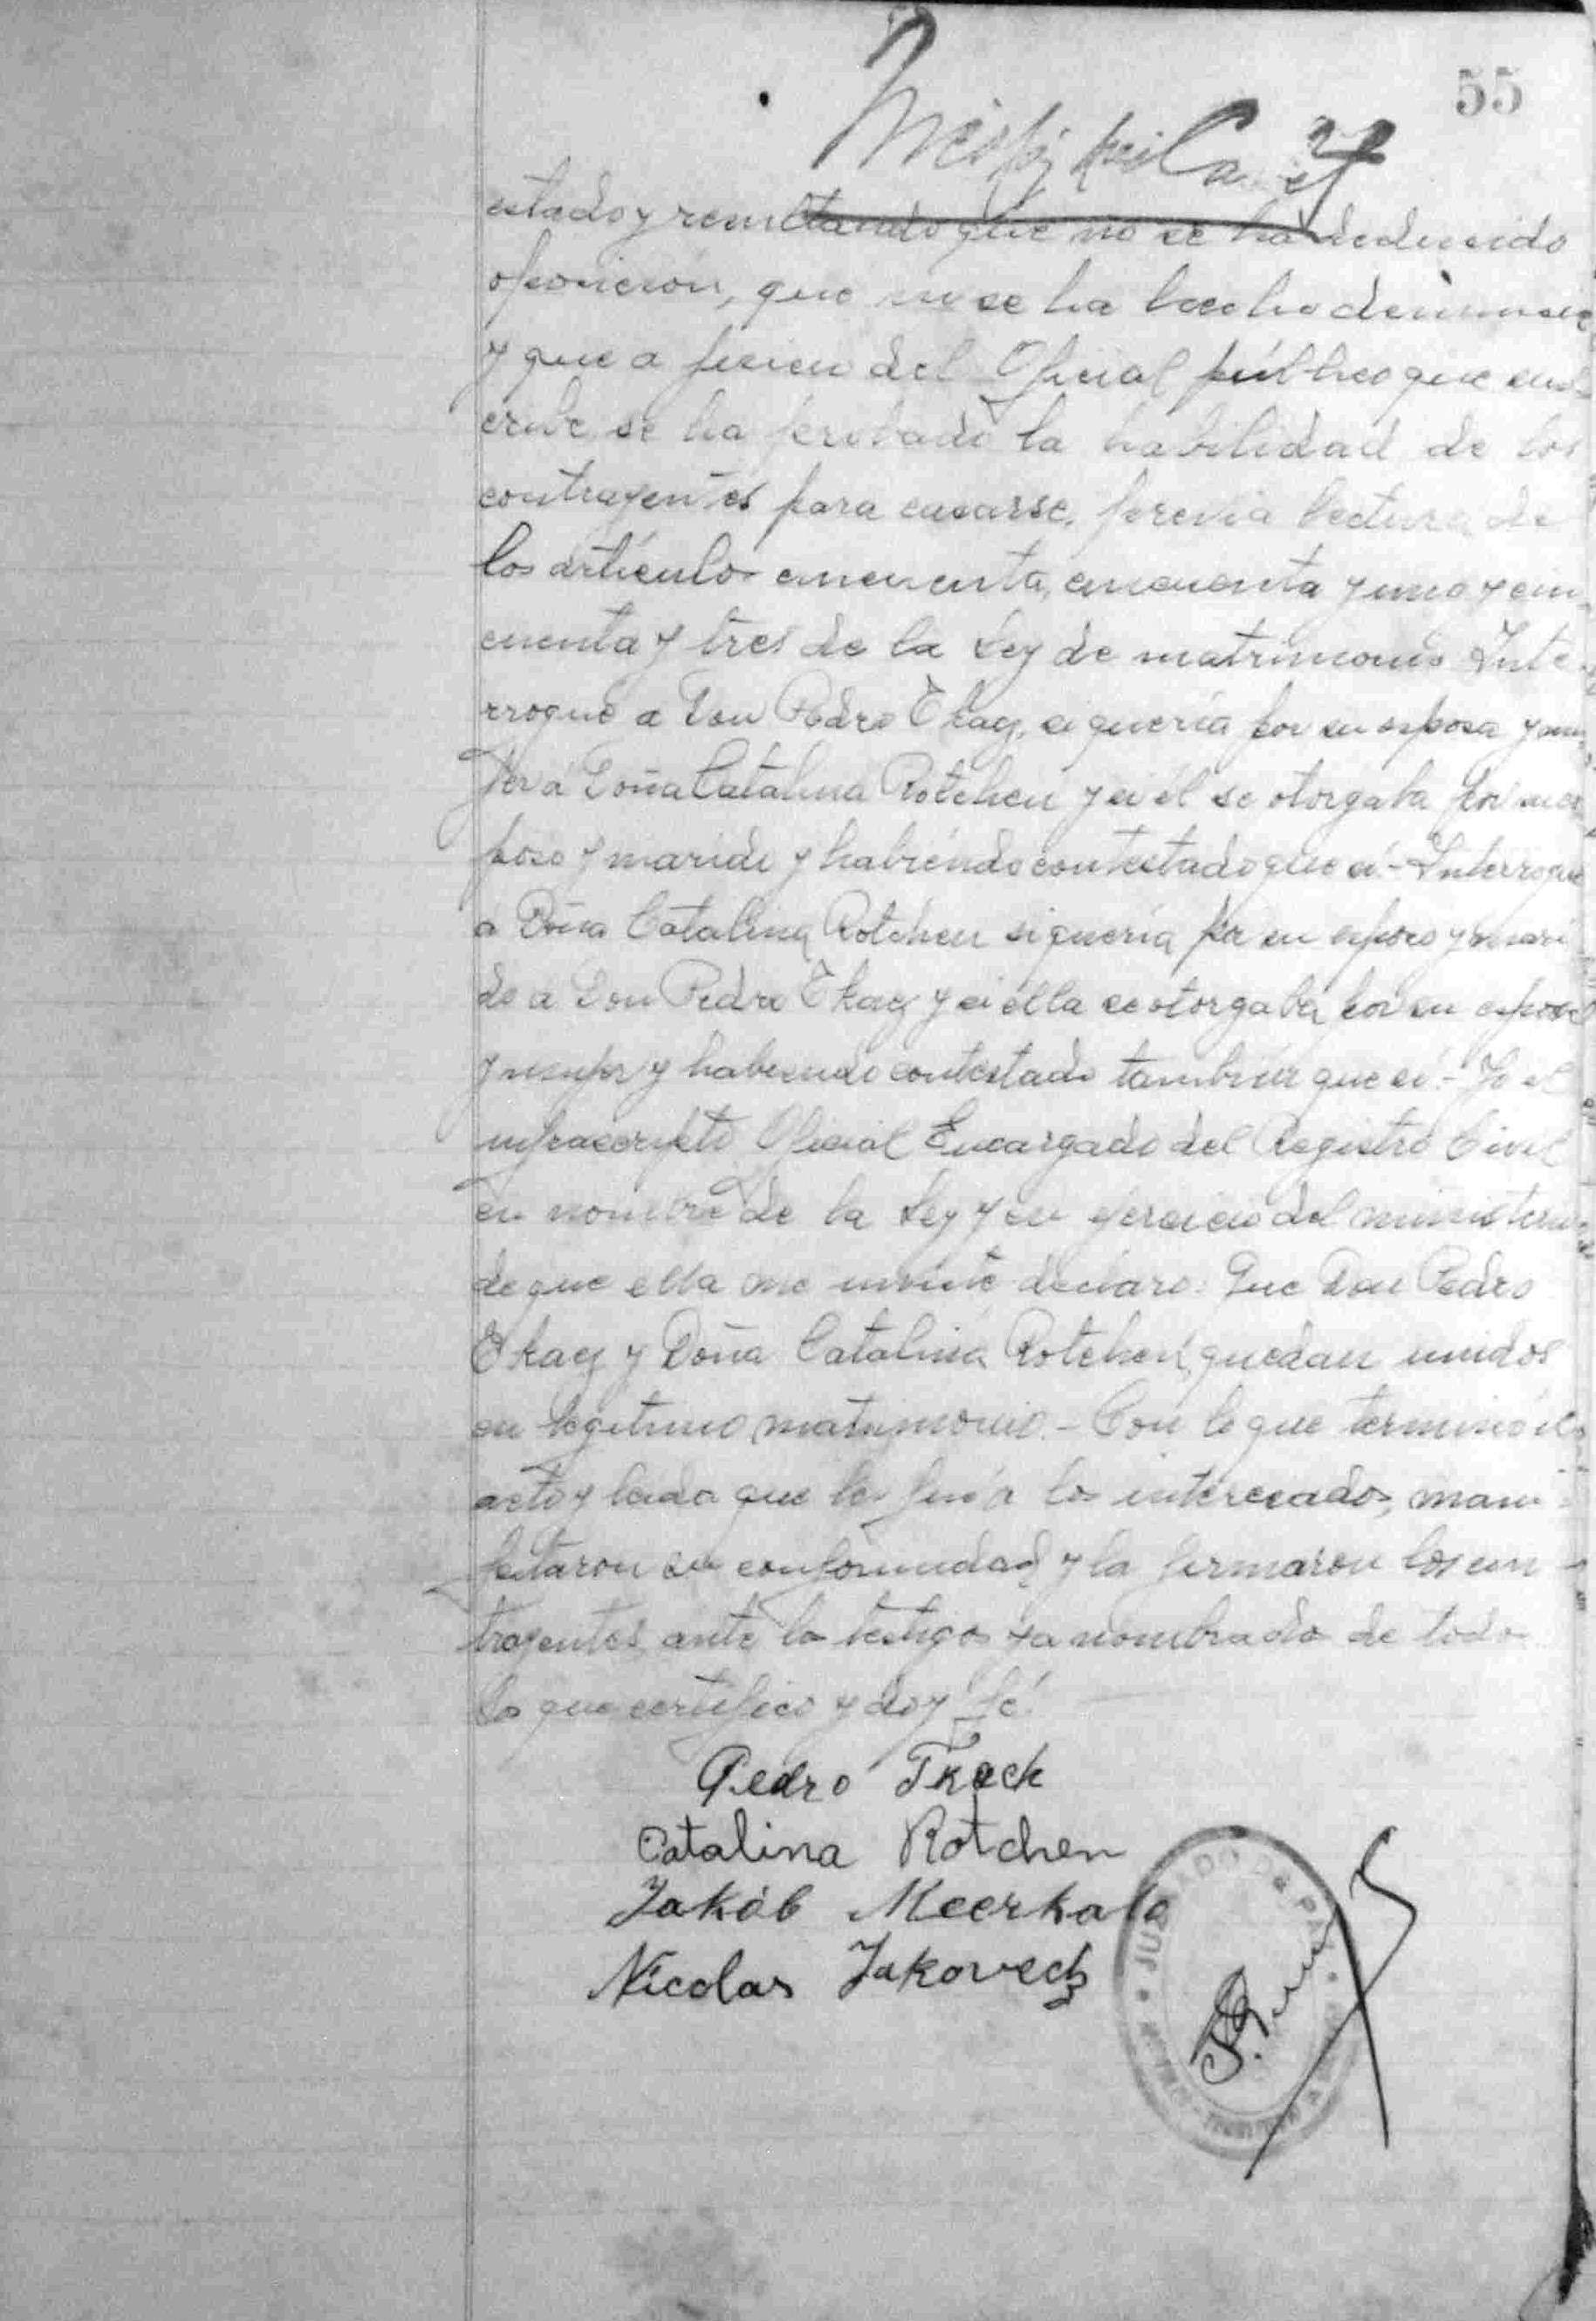 55
estado y resultando que no se ha deducido
oposición, que no se ha hecho denuncia
y que a juicio del Oficial público que sus-
cribe se ha probado la habilidad de los
contrayentes para casarse, previa lectura de
los artículos cincuenta, cincuenta y uno y cin-
cuenta y tres de la Ley de matrimonio Inte-
rrogué a Don Pedro Tkacz, si quería por su esposa y mu-
jer a Doña Catalina Rotchen y si él se otorgaba por su es-
poso y marido y habiendo contestado que si.- Interrogué
a Doña Catalina Rotchen si quería por su esposo y mari-
do a Don Pedro Tkacz y si ella se otorgaba por su esposa
y mujer y habiendo contestado también que si.- Yo el
infrascripto Oficial Encargado del Registro Civil
en nombre de la Ley y en ejercicio del ministerio
de que ella me inviste declaro: Que Don Pedro
Tkacz y Doña Catalina Rotchen, quedan unidos
en legitimo matrimonio.- Con lo que terminó el
acto y leida que les fué a los interesados, mani-
festaron su conformidad y la firmaron los con-
trayentes, ante los testigos ya nombrados de todo
lo que certifico y doy fé.
Pedro Tkach
Catalina Rotchen
Jakób Meerkalo
Nicolas Jakovecz
JUZGADO DE PAZ